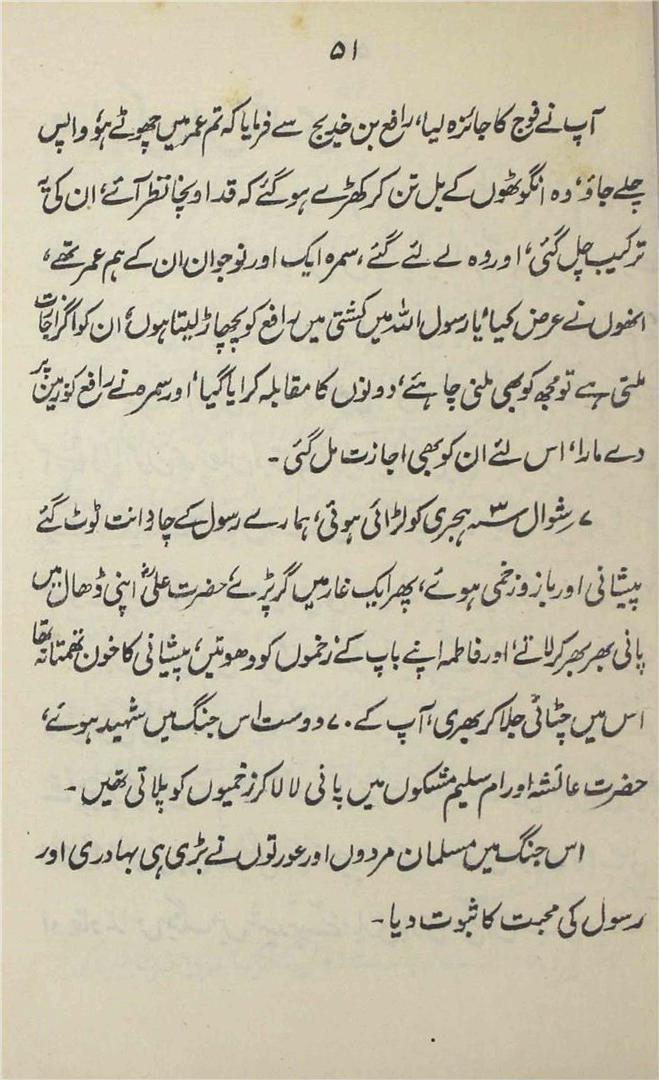 ۵۱
آپ نے فوج کا جائزہ لیا، رافع بن خدیج سے فرمایا کہ تم عمر میں چھوٹے ہو، واپس
چلے جاؤ، وہ انگوٹھوں کے بل تن کر کھڑے ہو گئے کہ قد اونچا نظر آئے، ان کی یہ
ترکیب چل گئی، اور وہ لے لئے گئے، سمرہ ایک اور نوجوان ان کے ہم عمر تھے،
انھوں نے عرض کیا، یا رسول اللہ میں کشتی میں رافع کو پچھاڑ لیتا ہوں، ان کو اگر اجازت
ملتی ہے تو مجھ کو بھی ملنی چاہئے، دونوں کا مقابلہ کرایا گیا، اور سمرہ نے رافع کو زمین پر
دے مارا، اس لئے ان کو بھی اجازت مل گئی۔
۷ شوال ۳ ہجری کو لڑائی ہوئی، ہمارے رسول کے چار دانت ٹوٹ گئے
پیشانی اور بازو زخمی ہوئے، پھر ایک غار میں گر پڑے، حضرت علیؓ اپنی ڈھال میں
پانی بھر بھر کر لاتے، اور فاطمہ اپنے باپ کے زخموں کو دھوتیں، پیشانی کا خون تھمتا نہ تھا
اس میں چٹائی جلا کر بھری، آپ کے ۷۰ دوست اس جنگ میں شہید ہوئے،
حضرت عائشہ اور ام سلیم مشکوں میں پانی لا لا کر زخمیوں کو پلاتی تھیں۔
اس جنگ میں مسلمان مردوں اور عورتوں نے بڑی ہی بہادری اور
رسول کی محبت کا ثبوت دیا۔